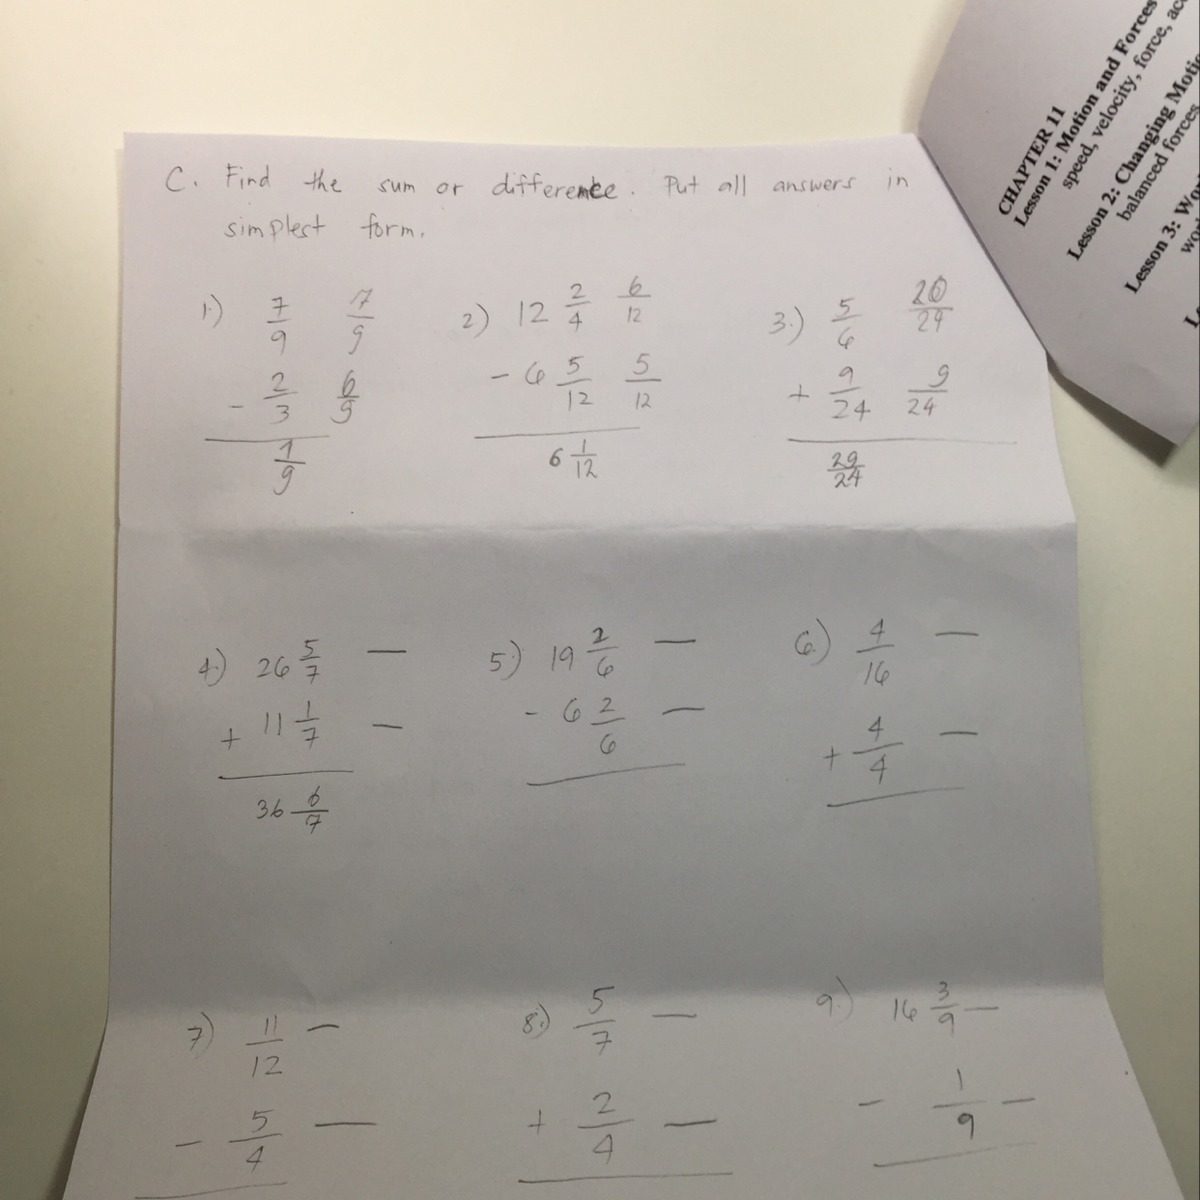 C. Find the sum or difference. Put all answers in
simplest form.
1.) 7/9 7/9
- 2/3 6/9
1/9
2) 12 2/4 6/12
- 6 5/12 5/12
6 1/12
3.) 5/6 20/24
+ 9/24 9/24
29/24
4.) 26 5/7 —
+ 11 1/7 —
36 6/7
5.) 19 2/6 —
- 6 2/6 —
6.) 4/16 —
+ 4/4 —
7.) 11/12 —
- 5/4 —
8.) 5/7 —
+ 2/4 —
9.) 16 3/9 —
- 1/9 —
CHAPTER 11
Lesson 1: Motion and Forces
speed, velocity, force, acc
Lesson 2: Changing Motio
balanced forces
Lesson 3: Wo